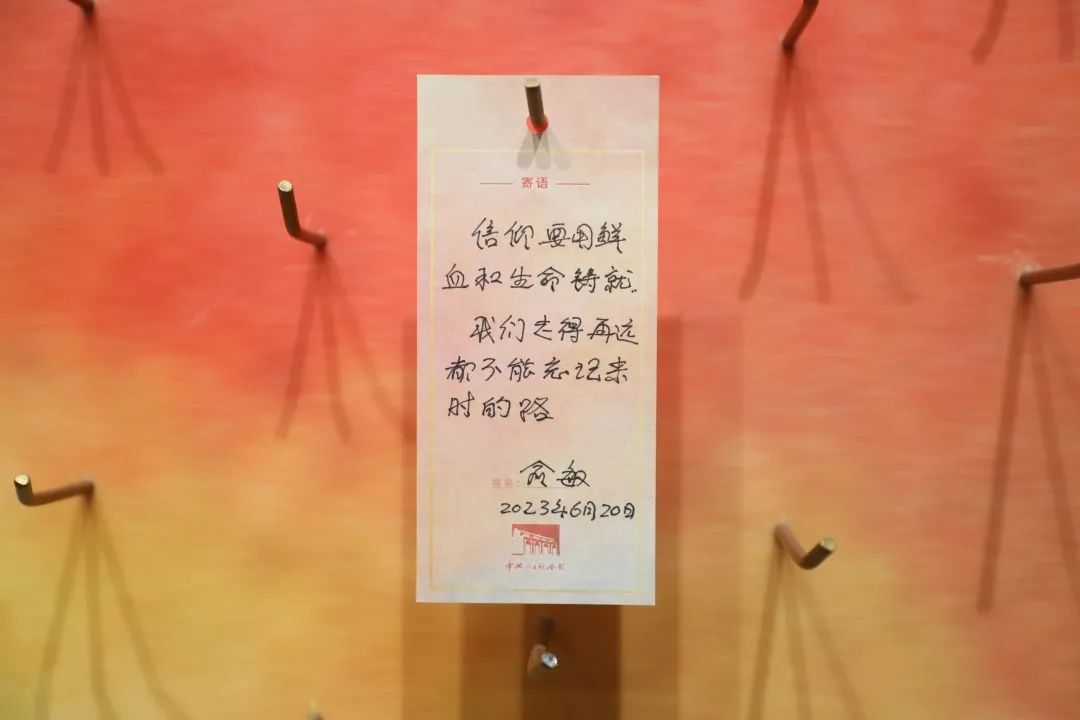 寄语
信仰要用鲜
血和生命铸就.
我们走得再远
都不能忘记来
时的路
签名: 俞敏
2023年6月20日
中共一大纪念馆